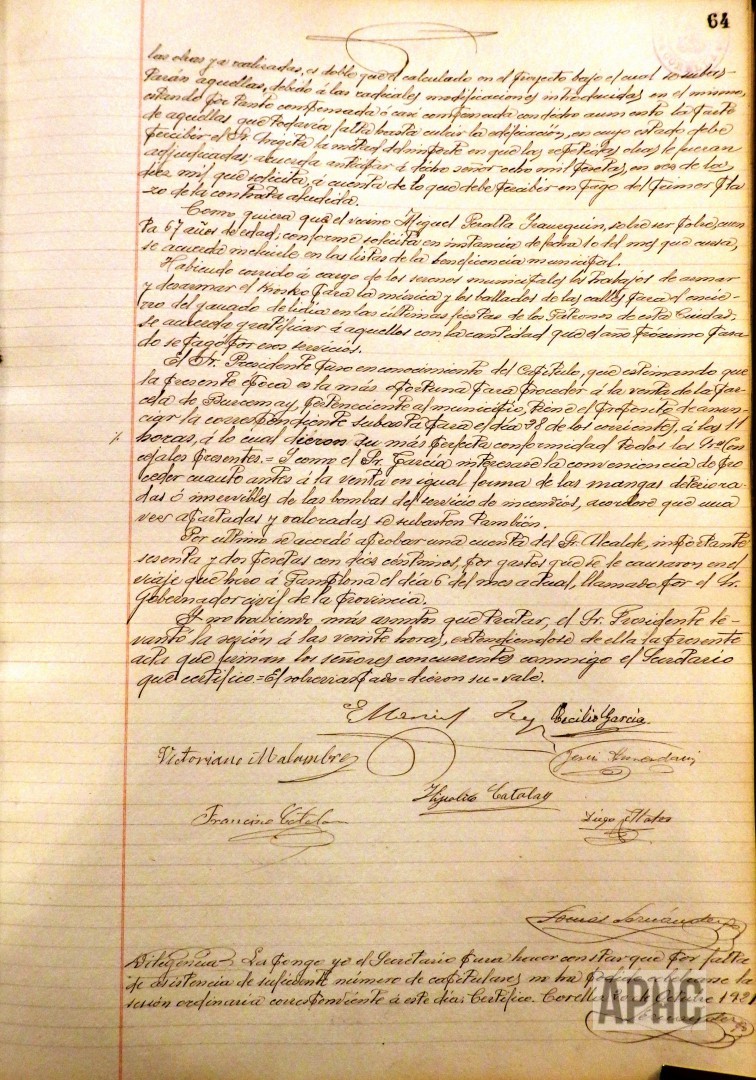 64
las obras ya realizadas, es doble que el calculado en el proyecto bajo el cual se subas-
taran aquellas, debido á las radicales modificaciones introducidas en el mismo,
estando por tanto compensada ó casi compensada con dicho aumento la parte
de aquellas que todavía falta hasta cubrir la edificación, en cuyo estado debe
percibir el Sr. la mitad del importe en que las repetidas obras le fueron
adjudicadas; acuerda anticipar á dicho señor ocho mil pesetas, en vez de las
diez mil que solicita, á cuenta de lo que debe percibir en pago del primer pla-
zo de la contrata aludida.
Como quiera que el vecino Miguel Peralta sobre ser pobre, cuen-
ta 67 años de edad; conforme solicita en instancia de fecha 10 del mes que cursa,
se acuerda incluirle en las listas de la beneficencia municipal.
Habiendo corrido á cargo de los serenos municipales los trabajos de armar
y desarmar el kiosko para la música y los vallados de las calles para el encie-
rro del ganado de lidia en las últimas fiestas de los Patronos de esta Ciudad;
se acuerda gratificar á aquellos con la cantidad que el año próximo pasa-
do se pagó por esos servicios.
El Sr. Presidente puso en conocimiento del Capítulo, que estimando que
la presente época es la más oportuna para proceder á la venta de la par-
cela de perteneciente al municipio, tiene el propósito de anun-
ciar la correspondiente subasta para el día 28 de los corrientes, á las 11
horas, á lo cual dieron su más perfecta conformidad todos los Sres. Con-
cejales presentes.= Y como el Sr. García interesare la conveniencia de pro-
ceder cuanto antes á la venta en igual forma de las mangas deteriora-
das ó inservibles de las bombas del servicio de incendios, acordose que una
vez apartadas y valoradas se subasten también.
Por último se acordó aprobar una cuenta del Sr. Alcalde, importante
sesenta y dos pesetas con diez céntimos, por gastos que se le causaron en el
viaje que hizo á Pamplona el día 6 del mes actual, llamado por el Sr.
Gobernador civil de la provincia.
Y no habiendo más asuntos que tratar, el Sr. Presidente le-
vantó la sesión á las veinte horas, extendiendose de ella la presente
acta que firman los señores concurrentes conmigo el Secretario
que certifico.= El sobrerraspado= dieron su= vale.
Cecilio García
Victoriano Malumbres
Hipólito Catalan
Francisco Catalan
Diego Mateo
Tomas Fernández
Diligencia. La pongo yo el Secretario para hacer constar que por falta
de asistencia de suficiente número de capitulares no ha podido celebrarse la
sesión ordinaria correspondiente á este día. Certifico. Corella Octubre 1921
Fernández
APHC